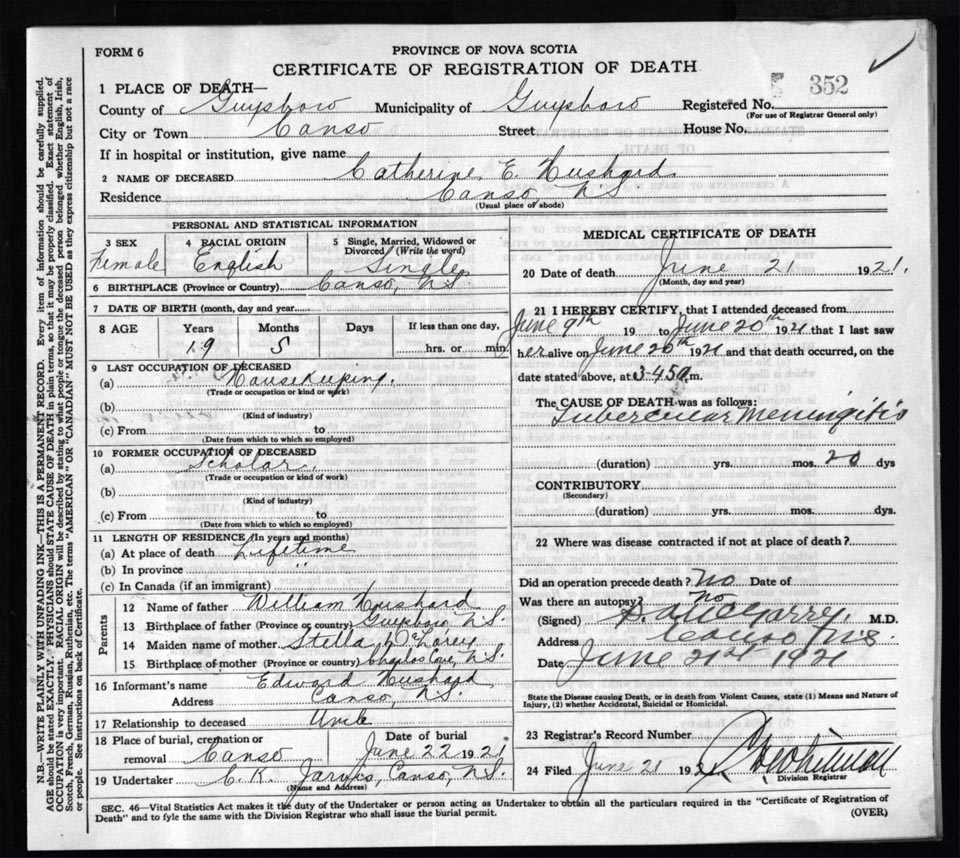 FORM 6
PROVINCE OF NOVA SCOTIA
CERTIFICATE OF REGISTRATION OF DEATH
352
1 PLACE OF DEATH—
County of Guysboro Municipality of Guysboro Registered No.
(For use of Registrar General only)
City or Town Canso Street House No.
If in hospital or institution, give name
2 NAME OF DECEASED Catherine E. Hushard
Residence Canso N.S.
(Usual place of abode)
PERSONAL AND STATISTICAL INFORMATION
3 SEX Female
4 RACIAL ORIGIN English
5 Single, Married, Widowed or Divorced (Write the word) Single
6 BIRTHPLACE (Province or Country) Canso, N.S.
7 DATE OF BIRTH (month, day and year)
8 AGE Years Months Days If less than one day,
19 5 hrs. or min.
9 LAST OCCUPATION OF DECEASED
(a) Housekeeping.
(Trade or occupation or kind of work)
(b)
(Kind of industry)
(c) From to
(Date from which to which so employed)
10 FORMER OCCUPATION OF DECEASED
(a) Scholar.
(Trade or occupation or kind of work)
(b)
(Kind of industry)
(c) From to
(Date from which to which so employed)
11 LENGTH OF RESIDENCE (In years and months)
(a) At place of death Lifetime
(b) In province " "
(c) In Canada (if an immigrant)
Parents
12 Name of father William Hushard
13 Birthplace of father (Province or country) Guysboro, N.S.
14 Maiden name of mother Stella
15 Birthplace of mother (Province or country) Cove, N.S.
16 Informant's name Edward Hushard
Address Canso, N.S.
17 Relationship to deceased Uncle
18 Place of burial, cremation or removal Canso
Date of burial June 22 1921
19 Undertaker C. K. Jarvis, Canso, N.S.
(Name and Address)
MEDICAL CERTIFICATE OF DEATH
20 Date of death June 21 1921.
(Month, day and year)
21 I HEREBY CERTIFY, that I attended deceased from
June 9th 19 to June 20th 1921 that I last saw
her alive on June 20th 1921 and that death occurred, on the
date stated above, at 3-45 a m.
The CAUSE OF DEATH was as follows:
Tubercular Meningitis
(duration) yrs. mos. 20 dys
CONTRIBUTORY
(Secondary)
(duration) yrs. mos. dys.
22 Where was disease contracted if not at place of death?
Did an operation precede death? No Date of
Was there an autopsy? No
(Signed) M.D.
Address Canso N.S
Date June 21st 1921
State the Disease causing Death, or in death from Violent Causes, state (1) Means and Nature of
Injury, (2) whether Accidental, Suicidal or Homicidal.
23 Registrar's Record Number
24 Filed June 21 192
Division Registrar
SEC. 46—Vital Statistics Act makes it the duty of the Undertaker or person acting as Undertaker to obtain all the particulars required in the "Certificate of Registration of
Death" and to fyle the same with the Division Registrar who shall issue the burial permit.
(OVER)
N.B.—WRITE PLAINLY WITH UNFADING INK—THIS IS A PERMANENT RECORD. Every item of information should be carefully supplied.
AGE should be stated EXACTLY. PHYSICIANS should STATE CAUSE OF DEATH in plain terms, so that it may be properly classified. Exact statement of
OCCUPATION is very important. RACIAL ORIGIN will be described by stating to what people or tongue the deceased person belonged whether English, Irish,
Scotch, French, German, Russian, Ruthenian, etc. The terms "AMERICAN" OR "CANADIAN" MUST NOT BE USED as they express citizenship but not a race
or people. See instructions on back of Certificate.